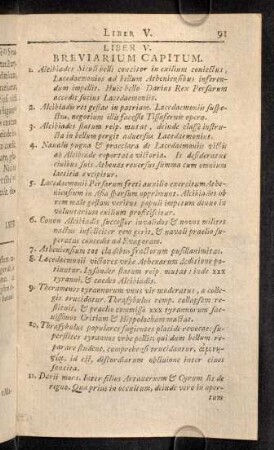 LIBER V. 91
LIBER V.
BREVIARIUM CAPITUM.
1. Alcibiades Siculi belli concitor in exilium coniectus,
Lacedaemonios ad bellum Atheniensibus inferen-
dum impellit. Huic bello Darius Rex Persarum
accedit socius Lacedaemoniis.
2. Alcibiadis res gestae in patriam. Lacedaemoniis suspe-
ctus, negotium illis facessit Tissafernis opera.
3. Alcibiades statum reip. mutat, deinde classe instru-
cta in bellum pergit adversus Lacedaemonios.
4. Navalis pugna & praeclara de Lacedaemoniis victis
ab Alcibiade reportata victoria. Is desideratus
civibus suis Athenas reversus summa cum omnium
laetitia excipitur.
5. Lacedaemonii Persarum freti auxilio exercitum Athe-
niensium in Asia sparsum opprimunt. Alcibiades ob
rem male gestam veritus populi impetum denuo in
voluntarium exilium proficiscitur.
6. Conon Alcibiadis successor invalidus & novus milites
nactus infeliciter rem gerit, & navali praelio su-
peratus concedit ad Evagoram.
7. Atheniensium tot cladibus fractorum pusillanimitas.
8. Lacedaemonii victores urbe Athenarum deditione po-
tiuntur. Lysander statum reip. mutat: inde xxx
tyranni, & caedes Alcibiadis.
9. Theramenes tyrannorum unus vir moderatus, a colle-
gis trucidatur. Thrasybulus remp. collapsam re-
stituit, & praelio commisso xxx tyrannorum sae-
vissimos Critiam & Hippolochum mactat.
10. Thrasybulus populares fugientes placide revocat: su-
perstites tyrannos urbe pellit: qui dum bellum re-
parare student, comprehensi trucidantur,
id est, discordiarum oblivione inter cives
sancita.
11. Darii mors. Inter filios Artaxerxem & Cyrum lis de
regno. Qua prius in occultum, deinde vero in aper-
tum